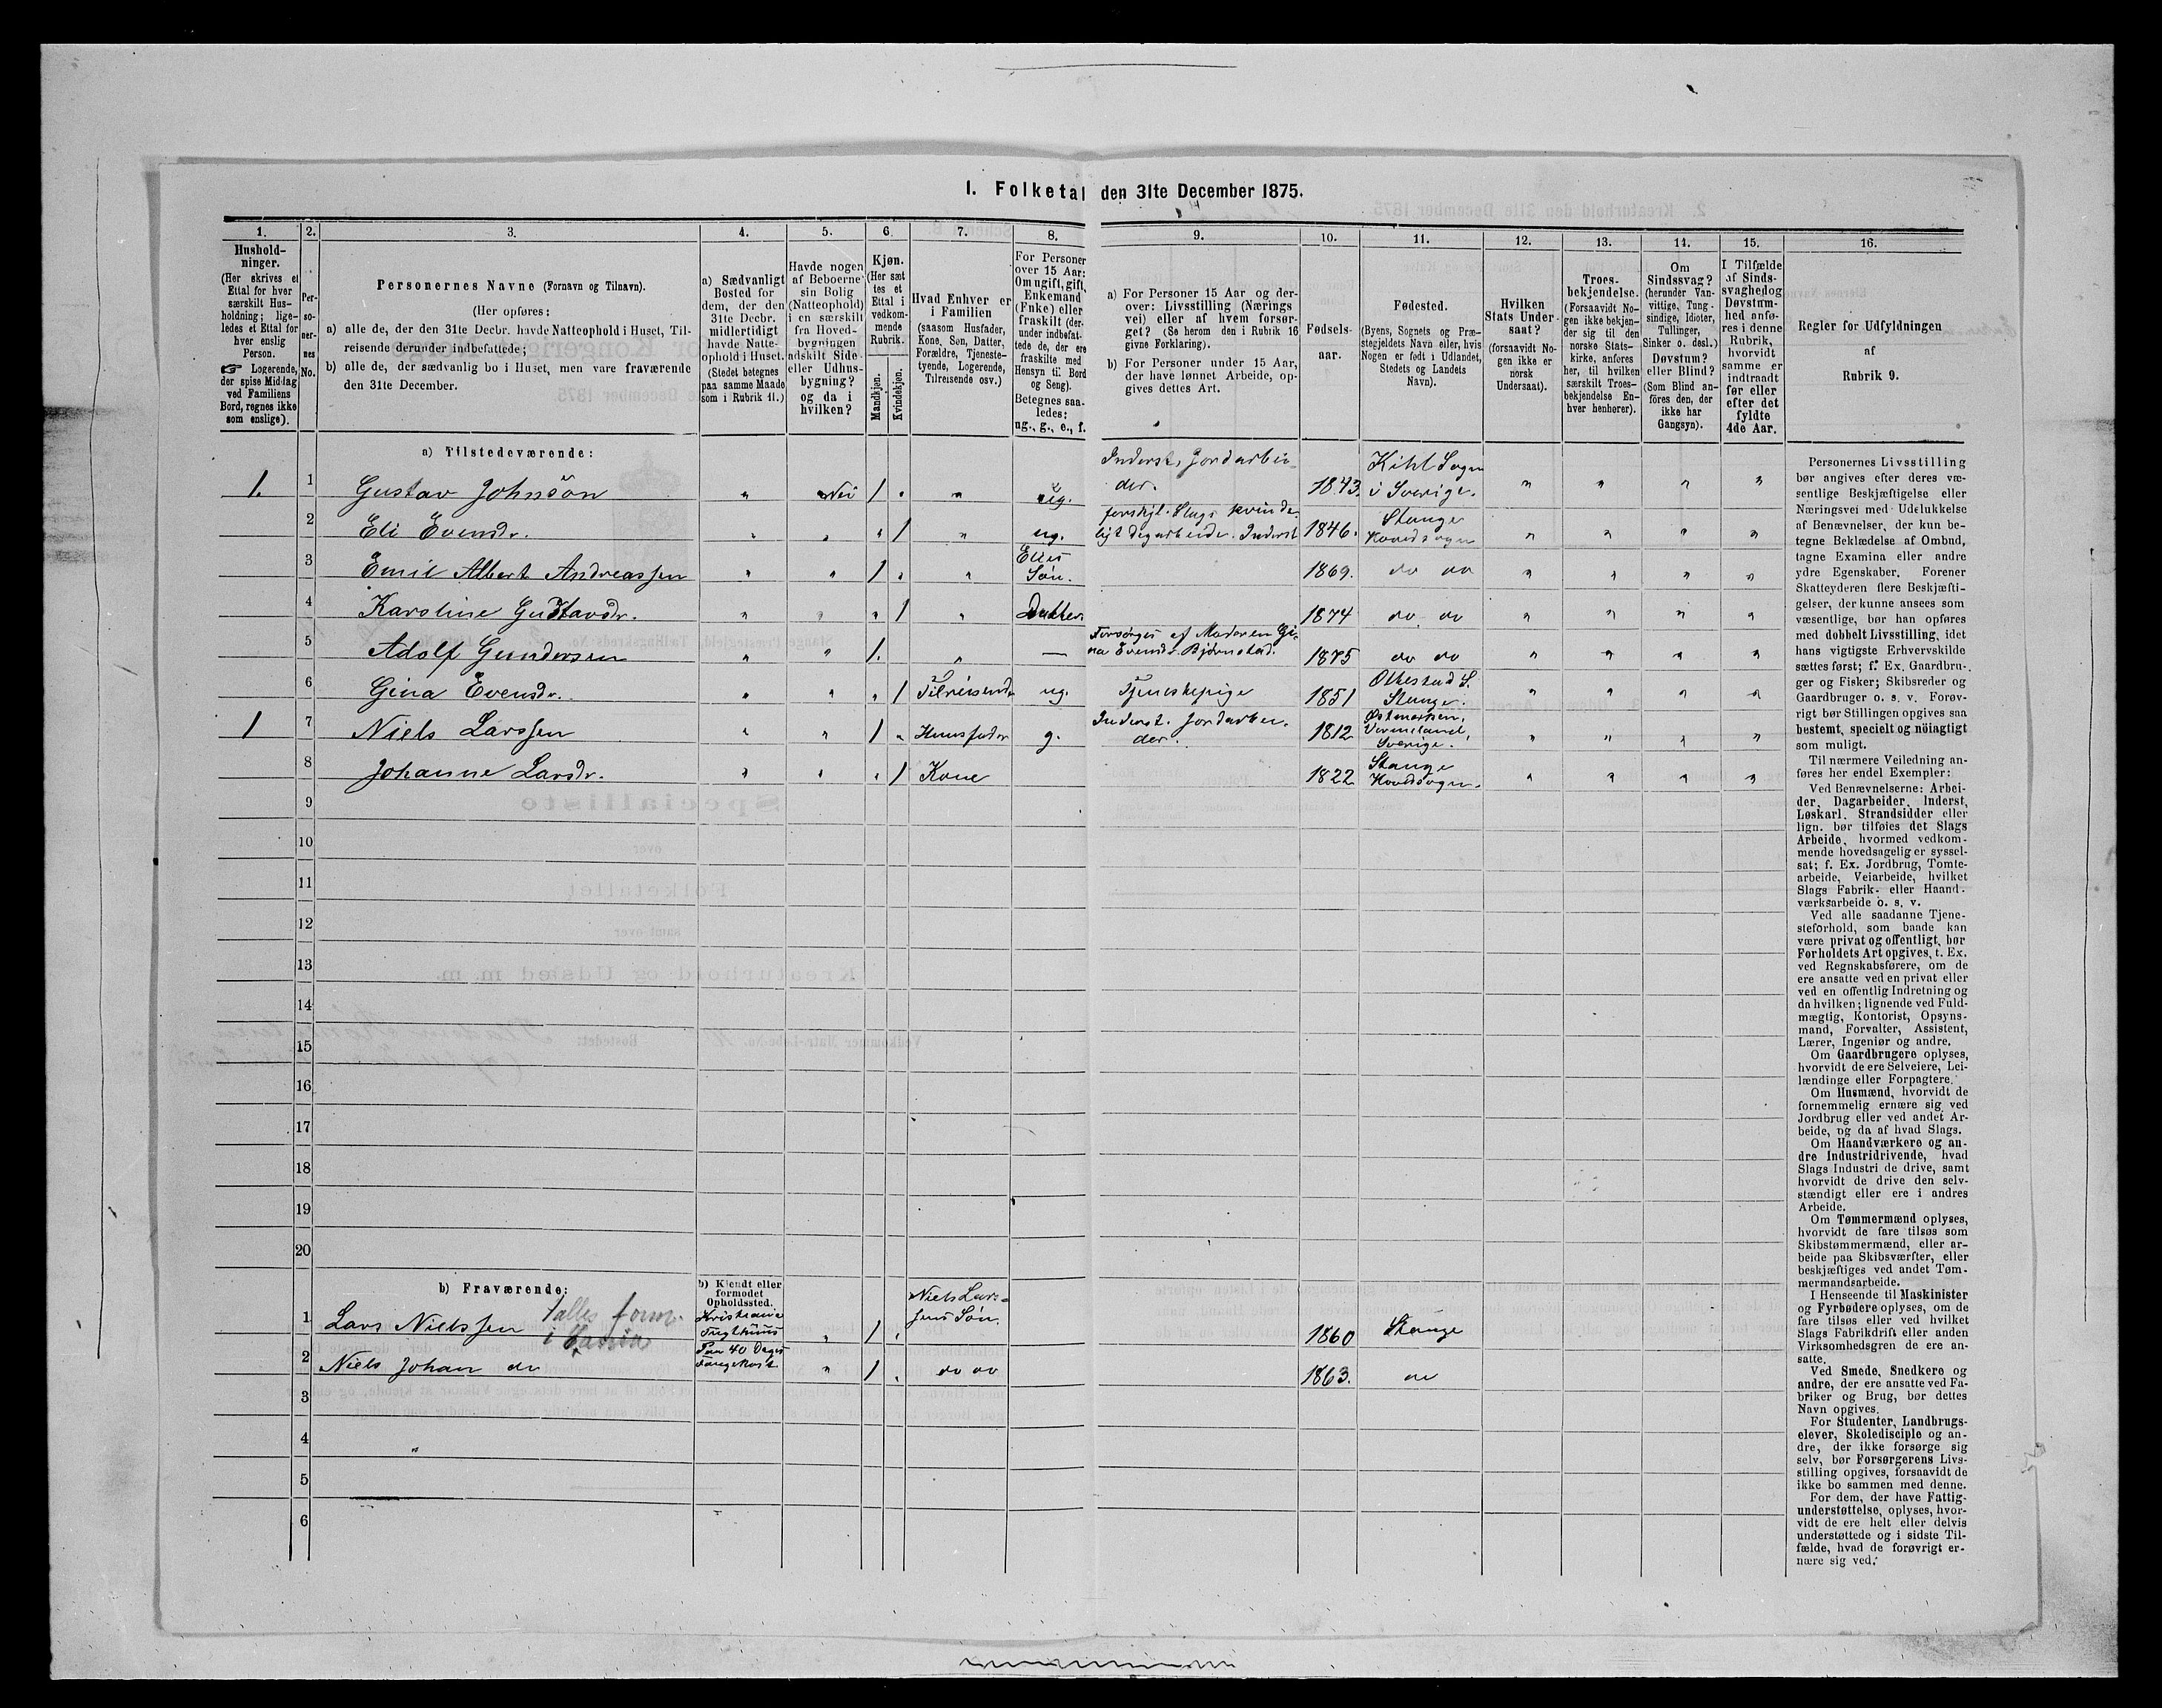 I. Folketal den 31te December 1875.
1.
2.
3.
4.
5.
6.
7.
8.
9.
10.
11.
12.
13.
14.
15.
16.
Hushold-
ninger.
(Her skrives et
Ettal for hver
særskilt Hus-
holdning; lige-
ledes et Ettal for
hver enslig
Person.
☞ Logerende,
der spise Middag
ved Familiens
Bord, regnes ikke
som enslige).
Per-
so-
ner-
nes
No.
Personernes Navne (Fornavn og Tilnavn).
(Her opføres:
a) alle de, der den 31te Decbr. havde Natteophold i Huset, Til-
reisende derunder indbefattede;
b) alle de, der sædvanlig bo i Huset, men vare fraværende
den 31te December.
a) Sædvanligt
Bosted for
dem, der den
31te Decbr.
midlertidigt
havde Natte-
ophold i Huset.
(Stedet betegnes
paa samme Maade
som i Rubrik 11.)
Havde nogen
af Beboerne
sin Bolig
(Natteophold)
i en særskilt
fra Hoved-
bygningen
adskilt Side-
eller Udhus-
bygning?
og da i
hvilken?
Kjøn.
(Her sæt
tes et
Ettal i
vedkom-
mende
Rubrik.
Mandkjøn.
Kvindekjøn.
Hvad Enhver er
i Familien
(saasom Husfader,
Kone, Søn, Datter,
Forældre, Tjeneste-
tyende, Logerende,
Tilreisende osv.)
For Personer
over 15 Aar:
Om ugift, gift,
Enkemand
(Enke) eller
fraskilt (der-
under indbefat-
tede de, der ere
fraskilte med
Hensyn til Bord
og Seng).
Betegnes saa-
ledes:
ug., g., e., f.
a) For Personer 15 Aar og der-
over: Livsstilling (Nærings
vei) eller af hvem forsør-
get? (Se herom den i Rubrik 16
givne Forklaring).
b) For Personer under 15 Aar,
der have lønnet Arbeide, op-
gives dettes Art.
Fødsels-
aar.
Fødested.
(Byens, Sognets og Præ-
stegjeldets Navn eller, hvis
Nogen er født i Udlandet,
Stedets og Landets
Navn).
Hvilken
Stats Under-
saat?
(forsaavidt No-
gen ikke er
norsk
Undersaat).
Troes-
bekjendelse.
(Forsaavidt No-
gen ikke bekjen-
der sig til den
norske Stats-
kirke, anføres
her, til hvilken
særskilt Troes-
bekjendelse En-
hver henhører).
Om
Sindssvag?
(herunder Van-
vittige, Tung-
sindige, Idioter,
Tullinger,
Sinker o. desl.)
Døvstum?
eller Blind?
(Som Blind an-
føres den, der
ikke har
Gangsyn).
I Tilfælde
af Sinds-
svaghed og
Døvstum-
hed anfø-
res i denne
Rubrik,
hvorvidt
samme er
indtraadt
før eller
efter det
fyldte
4de Aar.
Regler for Udfyldningen
af
Rubrik 9.
a) Tilstedeværende:
1. 1 Gustav Johnsön " Nei 1 . " ug. Inderst, Jordarbei-
der. 1843. Kihl Sogn
i Sverige. " " " "
2 Eli Evensdr. " " " 1 " ug. forskjl. Slags kvinde-
ligt dagarbeide. Inderst 1846. Stange
Hovedsogn " " " "
3 Emil Albert Andreassen " " 1 . " Elies
Søn. 1869. do do " " " "
4 Karoline Gustavsdr. " " " 1 " Datter 1874 do do " " " "
5 Adolf Gundersen " " 1. " — Forsørges af Moderen Gi-
na Evensdr. Bjørnstad. 1875 do do " " " "
6 Gina Evensdr. " " " 1 Tilreisende ug. Tjenestepige 1851 Ottestad S.
Stange. " " " "
1 7 Niels Larssen " " 1 " Huusfader g. Inderst. Jordarbei-
der. 1812 Østmarken,
Vermeland,
Sverige. " " " "
8 Johanne Larsdr. " " " 1 Kone 1822 Stange
Hovedsogn. " " " "
9
10
11
12
13
14
15
16
17
18
19
20
b) Fraværende:
b) Kjendt eller
formodet
Opholdssted.
1 Lars Nielssen Kristiania
Tugthuus " 1 . Niels Lars-
sens Søn. 1860 Stange
2 Niels Johan do Paa 40 Dages
Fangekost " 1 . do do 1863. do
3
4 "
5
6
Personernes Livsstilling
bør angives efter deres væ-
sentlige Beskjæftigelse eller
Næringsvei med Udelukkelse
af Benævnelser, der kun be-
tegne Beklædelse af Ombud,
tagne Examina eller andre
ydre Egenskaber. Forener
Skatteyderen flere Beskjæfti-
gelser, der kunne ansees som
væsentlige, bør han opføres
med dobbelt Livsstilling, idet
hans vigtigste Erhvervskilde
sættes først; f. Ex. Gaardbru-
ger og Fisker; Skibsreder og
Gaardbruger o. s. v. Forøv-
rigt bør Stillingen opgives saa
bestemt, specielt og nöiagtigt
som muligt.
Til nærmere Veiledning an-
føres her endel Exempler:
Ved Benævnelserne: Arbei-
der, Dagarbeider, Inderst,
Løskarl, Strandsidder eller
lign. bør tilføies det Slags
Arbeide, hvormed vedkom-
mende hovedsagelig er syssel-
sat; f. Ex. Jordbrug, Tomte-
arbeide, Veiarbeide, hvilket
Slags Fabrik- eller Haand-
værksarbeide o. s. v.
Ved alle saadanne Tjene-
steforhold, som baade kan
være privat og offentligt, bør
Forholdets Art opgives, t. Ex.
ved Regnskabsførere, om de
ere ansatte ved en privat eller
ved en offentlig Indretning og
da hvilken; lignende ved Fuld-
mægtig, Kontorist, Opsyns-
mand, Forvalter, Assistent,
Lærer, Ingeniør og andre.
Om Gaardbrugere oplyses,
hvorvidt de ere Selveiere, Lei-
lændinge eller Forpagtere.
Om Husmænd, hvorvidt de
fornemmelig ernære sig ved
Jordbrug eller ved andet Ar-
beide, og da af hvad Slags.
Om Haandværkere og an-
dre Industridrivende, hvad
Slags Industri de drive, samt
hvorvidt de drive den selv-
stændigt eller ere i andres
Arbeide.
Om Tømmermænd oplyses,
hvorvidt de fare tilsøs som
Skibstømmermænd, eller ar-
beide paa Skibsværfter, eller
beskjæftiges ved andet Tøm-
mermandsarbeide.
I Henseende til Maskinister
og Fyrbødere oplyses, om de
fare tilsøs eller ved hvilket
Slags Fabrikdrift eller anden
Virksomhedsgren de ere an-
satte.
Ved Smede, Snedkere og
andre, der ere ansatte ved Fa-
briker og Brug, bør dettes
Navn opgives.
For Studenter, Landbrugs-
elever, Skoledisciple og an-
dre, der ikke forsørge sig
selv, bør Forsørgerens Livs-
stilling opgives, forsaavidt de
ikke bo sammen med denne.
For dem, der have Fattig-
understøttelse, oplyses, hvor-
vidt de ere helt eller delvis
understøttede og i sidste Til-
fælde, hvad de forøvrigt er-
nære sig ved.